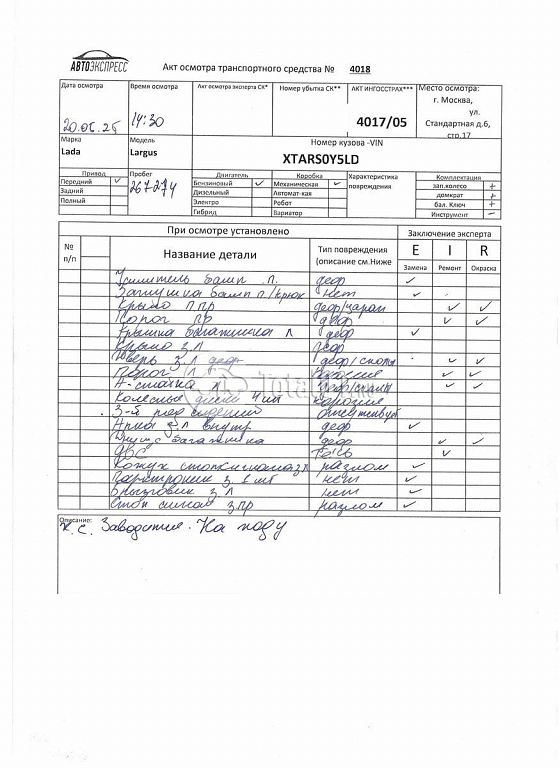 АВТОЭКСПРЕСС
Акт осмотра транспортного средства № 4018
Дата осмотра Время осмотра Акт осмотра эксперта СК* Номер убытка СК** АКТ ИНГОССТРАХ*** Место осмотра:
14:30 4017/05 г. Москва, ул. Стандартная д.6, стр.17
Марка Модель Номер кузова -VIN
Lada Largus XTARS0Y5LD
Привод Пробег Двигатель Коробка Характеристика повреждения Комплектация
Передний ✓ 267274 Бензиновый ✓ Механическая ✓ зап.колесо +
Задний Дизельный Автомат-кая домкрат +
Полный Электро Робот бал. Ключ +
Гибрид Вариатор Инструмент -
При осмотре установлено Заключение эксперта
№ п/п Название детали Тип повреждения (описание см.Ниже E I R
Замена Ремонт Окраска
Усилитель бамп. п. деф ✓
Заглушка бамп п/крюк нет ✓
Крыло ппр деф/царап ✓ ✓
Порог пр деф ✓ ✓
Крышка багажника л деф ✓
Крыло з л деф
Дверь з л деф деф/сколы ✓ ✓
Порог л ✓ ✓
А-стойка л деф/сколы ✓ ✓
Колесные диски 4 шт коррозия
3-й ряд сидений отсутствует
Арка з л внутр. деф ✓
багажника деф ✓ ✓
ДВС течь ✓
Кожух разлом ✓
Парктроник з 1 шт нет ✓
Брызговик з л нет ✓
Стоп сигнал з пр разлом ✓
Описание:
Заводится. На ходу
Total